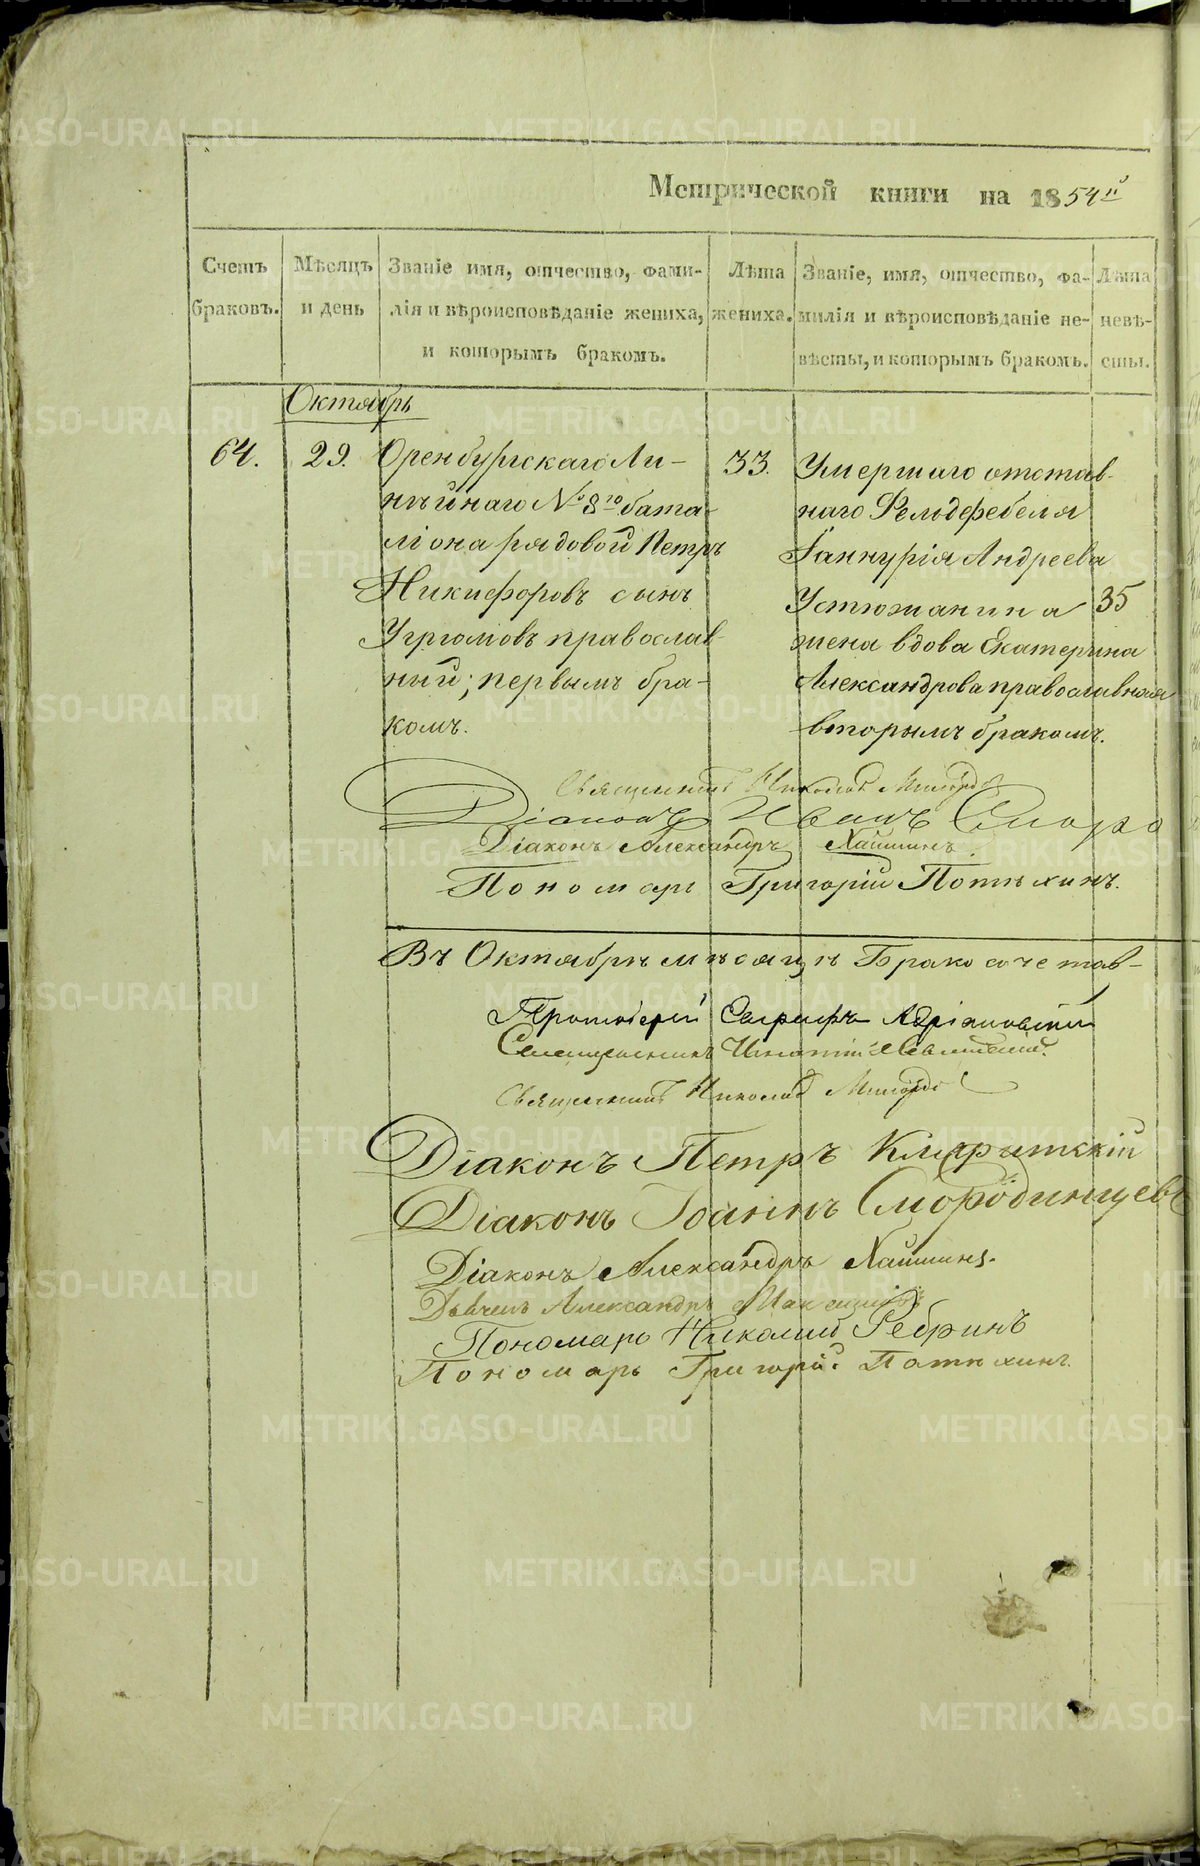 Метрической книги на 1854й
Счетъ браковъ.
Мѣсяцъ и день
Званіе имя, отчество, фами-
лія и вѣроисповѣданіе жениха,
и которымъ бракомъ.
Лѣта жениха.
Званіе, имя, отчество, фа-
милія и вѣроисповѣданіе не-
вѣсты, и которымъ бракомъ.
Лѣта невѣ-
сты.
Октябрь
64.
29.
Оренбургскаго Ли-
нѣйнаго № 8го бата-
ліона рядовой Петръ
Никифоровъ сынъ
Угрюмовъ православ-
ный; первымъ бра-
комъ.
33.
Умершаго отстав-
наго Фельдфебеля
Андреева
Устюжанина
жена вдова Екатерина
Александрова православная
вторымъ бракомъ.
35
Священникъ Николай
Діаконъ Иванъ Сморо
Діаконъ Александръ Хаминъ.
Пономарь Григорій Потѣхинъ.
Въ Октябрѣ мѣсяцѣ Бракосочетав-
Протоіерей
Священникъ Игнатій
Священникъ Николай
Діаконъ Петръ
Діаконъ Іоаннъ Смородинцевъ
Діаконъ Александръ Хаминъ.
Дьячекъ Александръ
Пономарь Николай Ребринъ
Пономарь Григорій Потѣхинъ.
METRIKI.GASO-URAL.RU